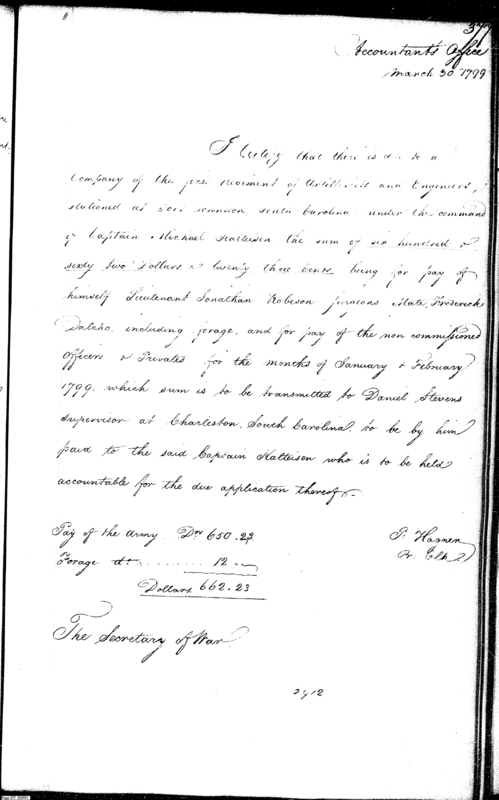 377
Accountant's Office
March 30 1799
I Certify that there is due to a
Company of the first regiment of Artillerists and Engineers,
stationed at Fort Johnson, South Carolina under the command
of Captain Michael Kalteisen the sum of six hundred &
sixty two Dollars & twenty three Cents, being for pay of
himself Lieutenant Jonathan Robeson surgeons Mate, Frederick
Dalcho, including forage, and for pay of the non commissioned
Officers & Privates for the months of January & February
1799. which sum is to be transmitted to Daniel Stevens
Supervisor at Charleston, South Carolina, to be by him
paid to the said Captain Kalteisen who is to be held
accountable for the due application thereof.
Pay of the Army. Drs 650.23
P. Hagner
Pr. Clk
Forage do. ........ 12
Dollars. 662.23
The Secretary of War
2912